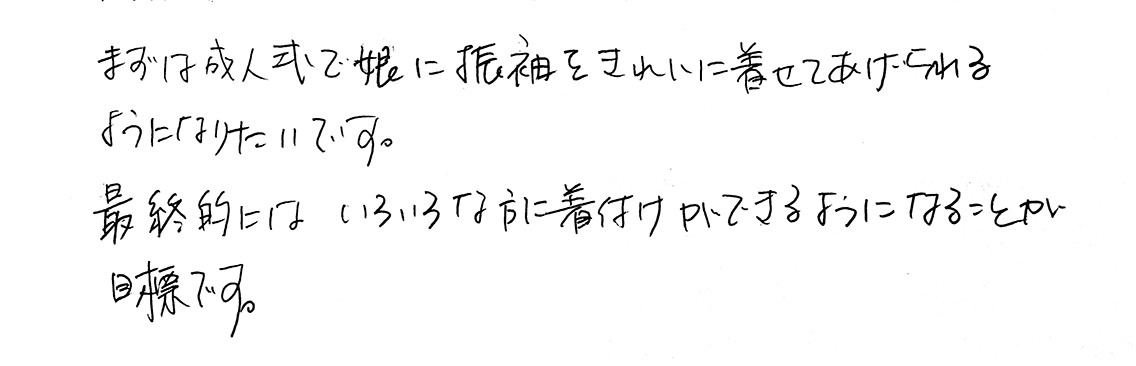 まずは成人式で娘に振袖をきれいに着せてあげられる
ようになりたいです。
最終的には いろいろな方に着付けができるようになることが
目標です。